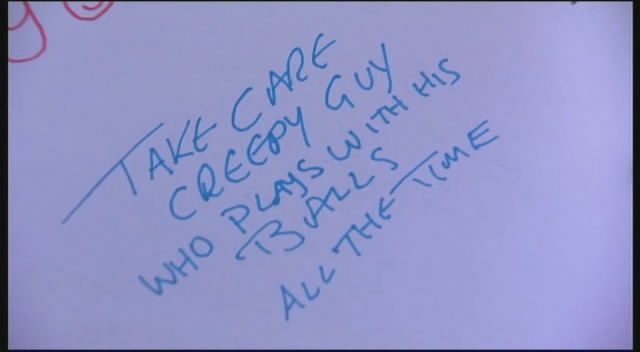 TAKE CARE
CREEPY GUY
WHO PLAYS WITH HIS
BALLS
ALL THE TIME